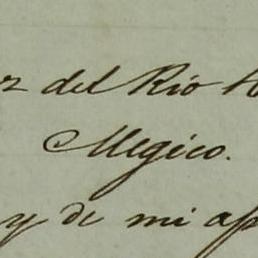 del Rio
Megico.
y de mi